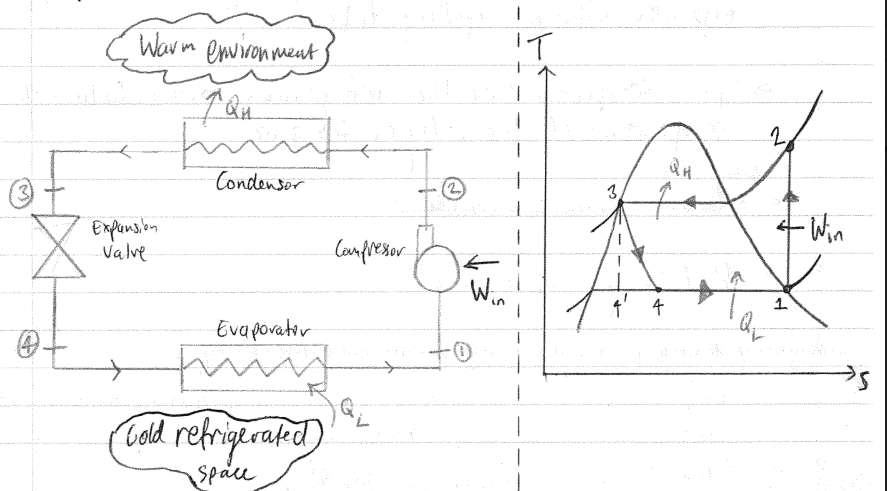 Warm environment
Q_H
Condensor
③
②
Expansion
Valve
Compressor
W_in
④
Evaporator
①
Q_L
Cold refrigerated
space
T
2
3
Q_H
W_in
4'
4
1
Q_L
s